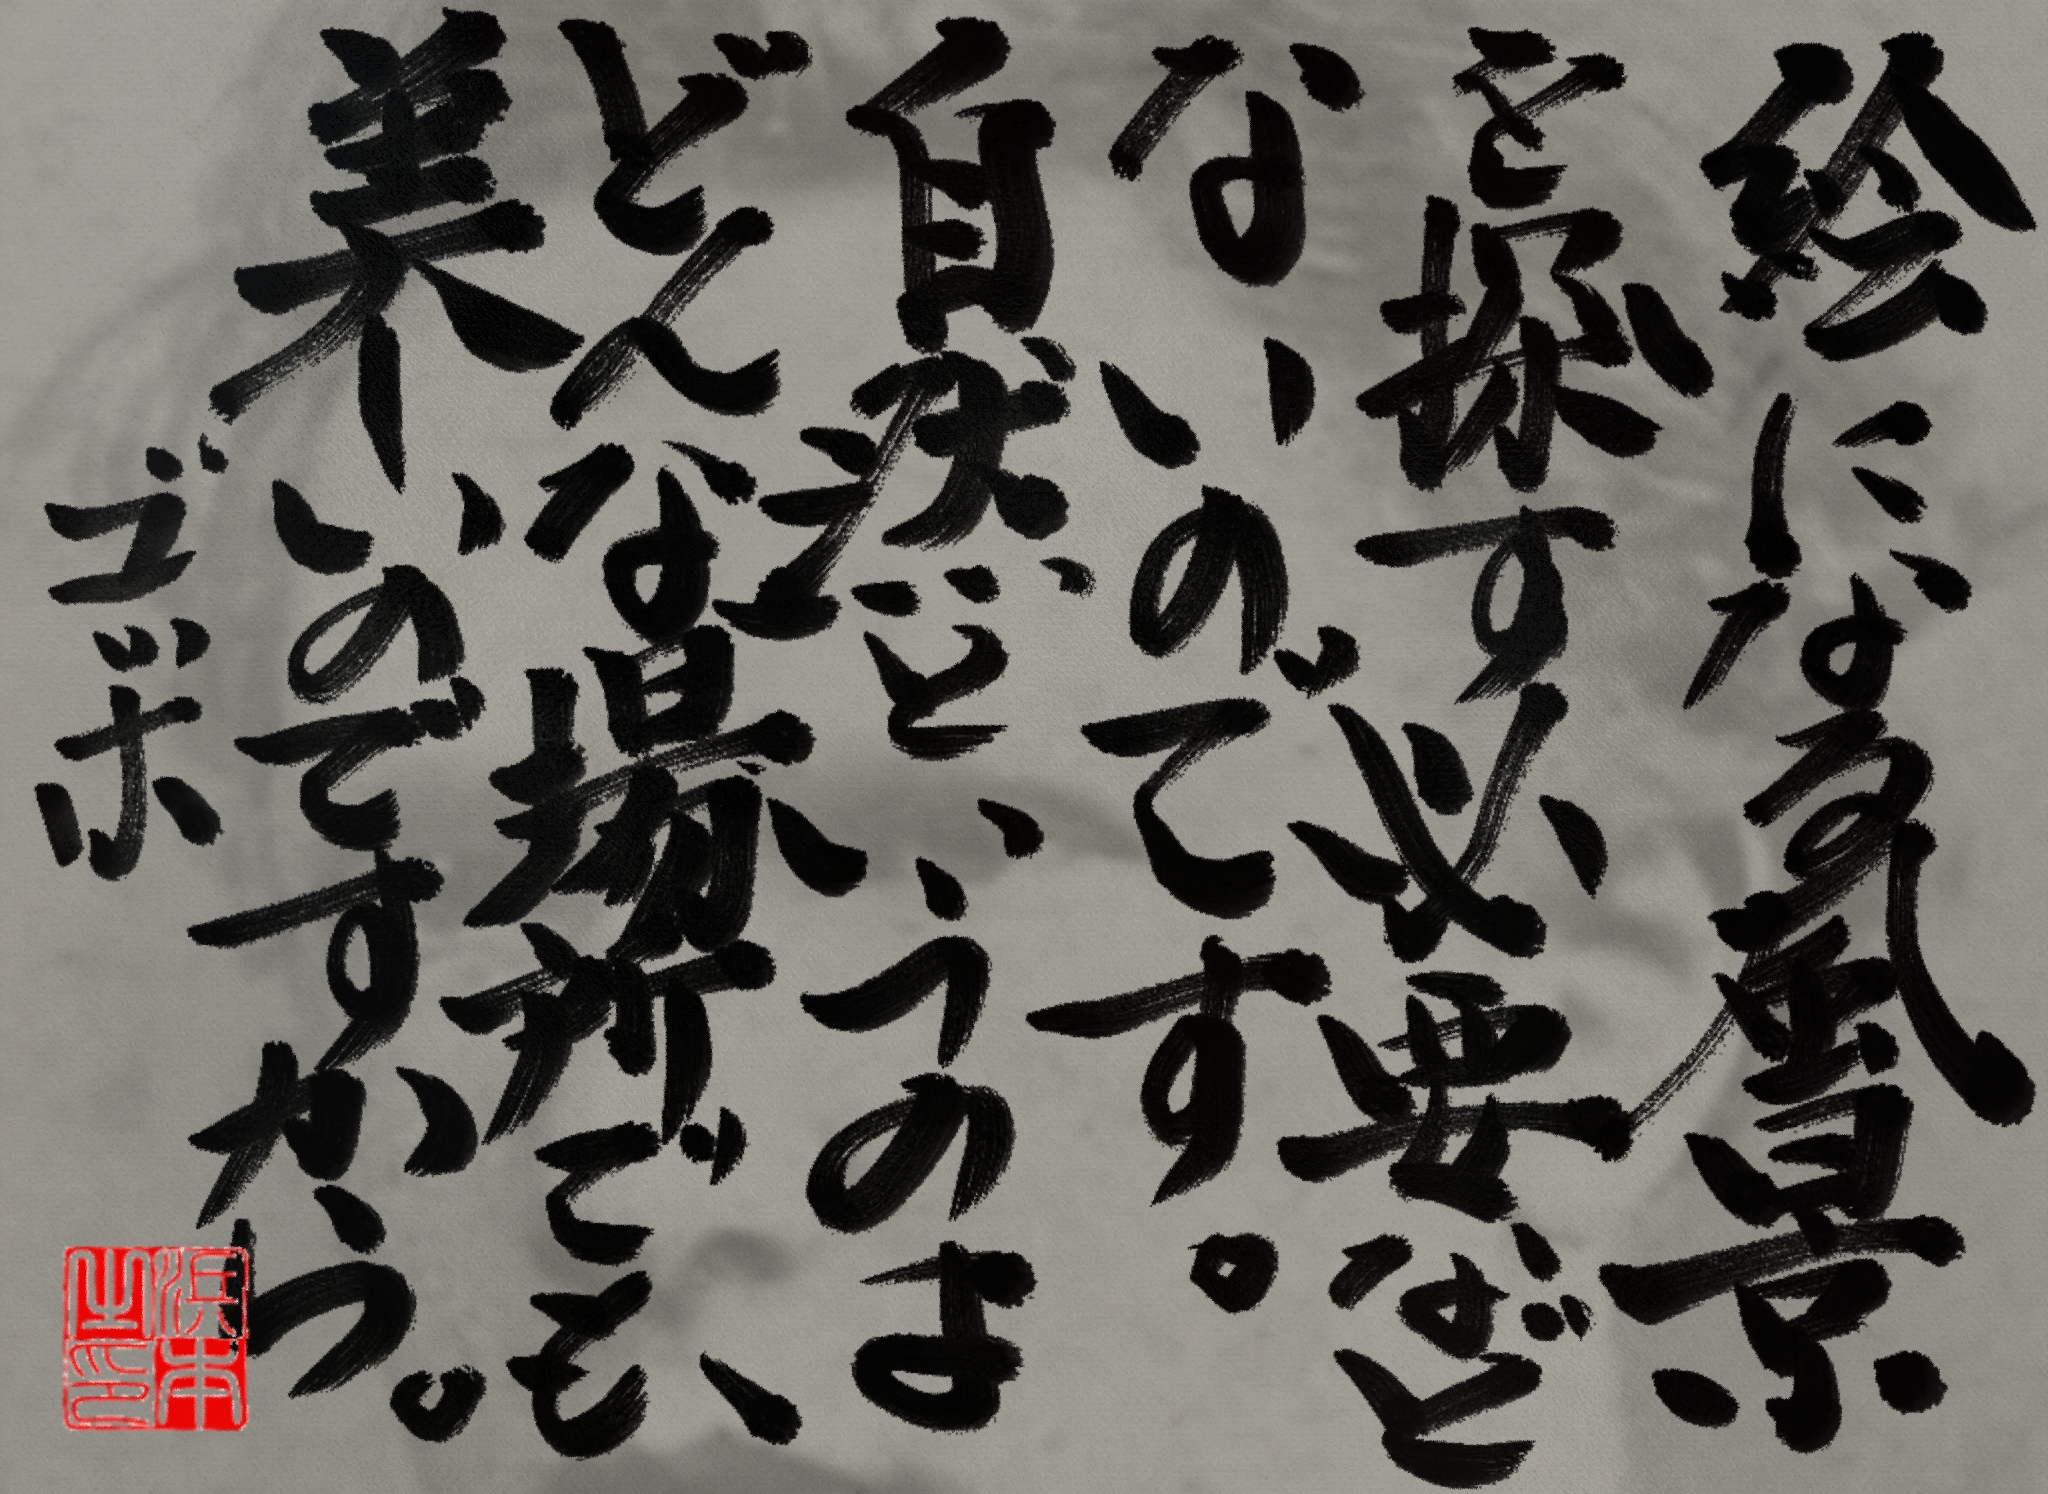 絵になる風景
を探す必要など
ないのです。
自然というのよ
どんな場所でも、
美いのですから。
ゴボ
浜本之印